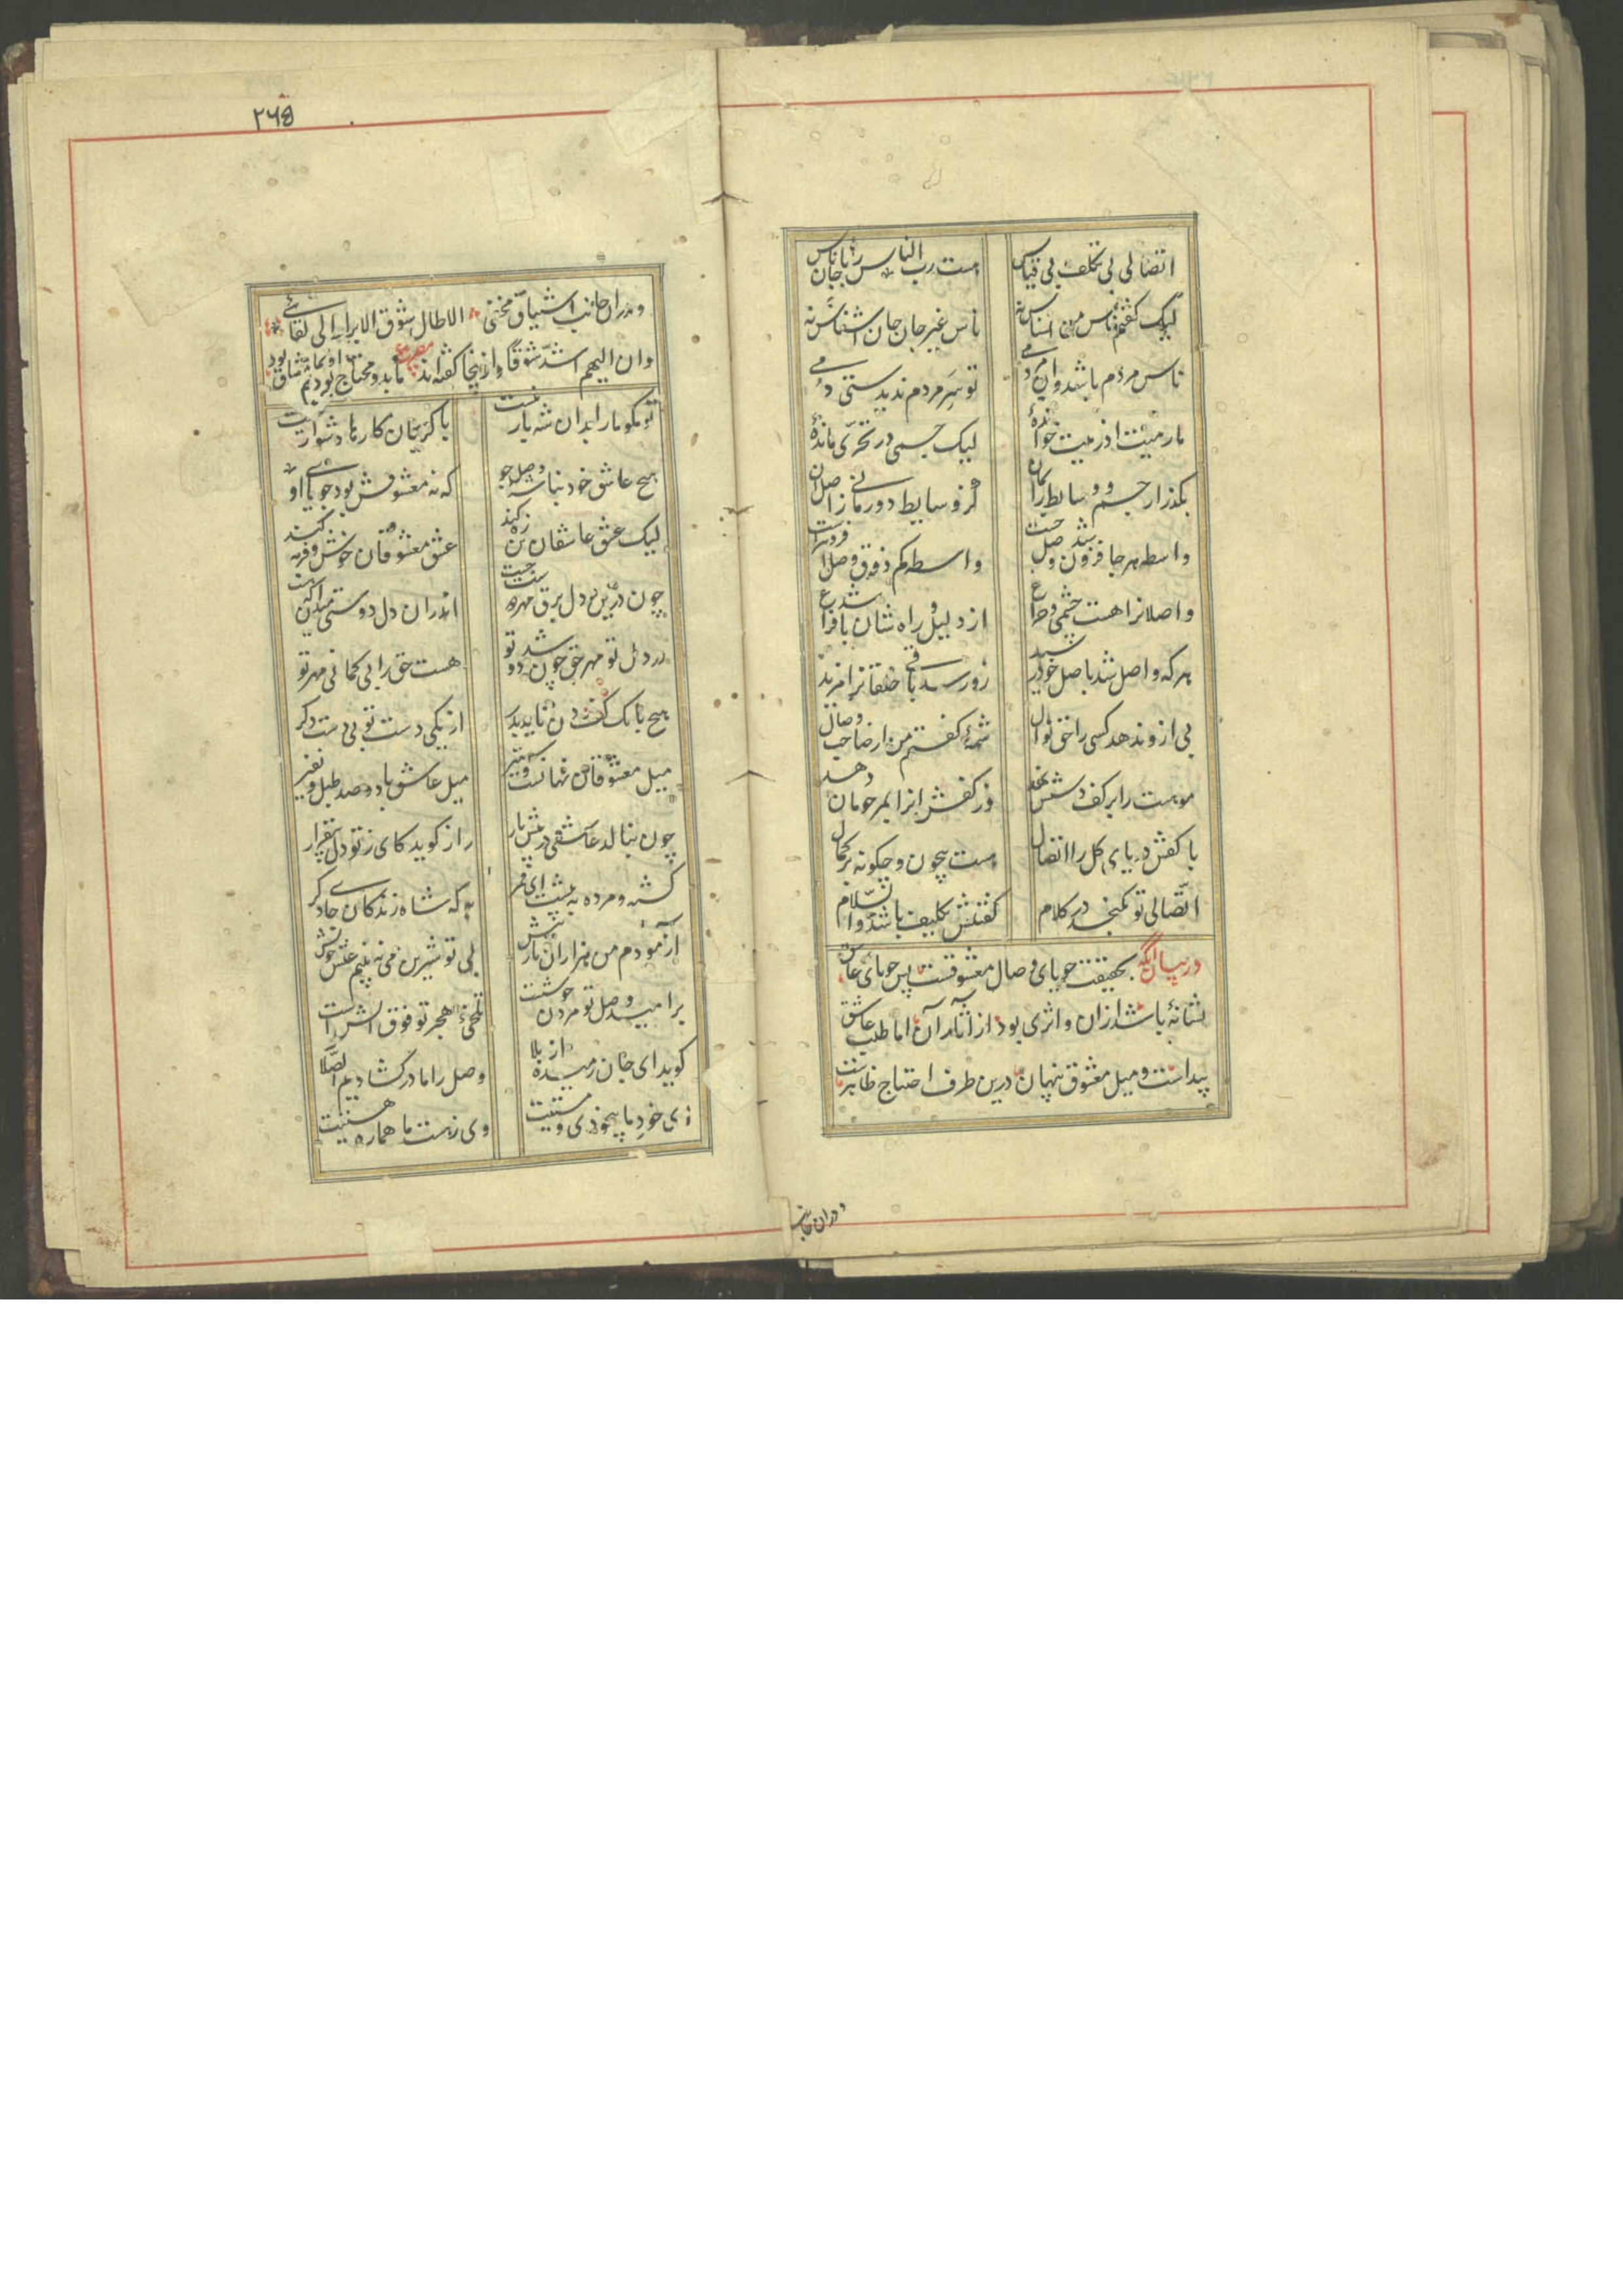 اتصالی بی تکلف بی قیاس
هست رب الناس را با جان ناس
لیک گفتم ناس من نسناس نه
ناس غیر جان جان اشناس نه
ناس مردم باشد و ان مردمی
تو سر مردم ندیدستی دمی
ما رمیت اذ رمیت خوانده
لیک جسمی در تحری مانده
بگذار جسم و وسایط را بمان
کز وسایط دور مانی ز اصل ان
واسطه هر جا فزون شد وصل جست
واسطه کم ذوق وصل افزونتر است
واصلانرا هست چشمی و چراغ
از دلیل و راه شان باشد فراغ
هر که واصل شد باصل خود رسید
بی ازو ندهد کسی را حق نوال
شمه گفتم من از صاحب وصال
موهبت را بر کف دستش نهد
وز کفش انرا بمرحومان دهد
با کفش دریای کل را اتصال
هست بیچون و چگونه بر کمال
اتصالی تو نگنجد در کلام
گفتنش تکلیف باشد والسلام
در بیان انکه بحقیقت جویای وصال معشوقست پس جویای عاشق
نشانه باشد ازان و اثری بود از اثار آن اما طلب عاشق
پیداست و میل معشوق پنهان درین طرف احتیاج ظاهرست
۲۶۵
و دران جانب اشتیاق مخفی الا طال شوق الابرار الی لقائی
وان الیهم اشد شوقا و از ینجا گفته اند مصرع ما بدو محتاج بودیم او بما مشتاق بود
تو مگو ما را بدان شه بار نیست
با کریمان کارها دشوار نیست
هیچ عاشق خود نباشد وصل جو
که نه معشوقش بود جویای او
لیک عشق عاشقان تن زه کند
عشق معشوقان خوش و فربه کند
چون درین دل برق مهر دوست جست
اندران دل دوستی میدان که هست
در دل تو مهر حق چون شد دو تو
هست حق را بی گمانی مهر تو
هیچ بانگ کف زدن ناید بدر
از یکی دست تو بی دست دگر
میل معشوقان نهانست و ستیر
میل عاشق با دو صد طبل و نفیر
چون بنالد عاشقی در پیش یار
راز گوید کای ز تو دل بیقرار
کشته و مرده به پیشت ای قمر
به که شاه زندگان جای دگر
آزمودم من هزاران بار بیش
بی تو شیرین می نه بینم عیش خویش
بر امید وصل تو مردن خوشست
تلخی هجر تو فوق آتش است
گوید ای جان رمیده از بلا
وصل را ما در گشادیم الصلا
ای خود ما بیخودی و مستیت
وی ز هست ما هماره هستیت
و دران جانب